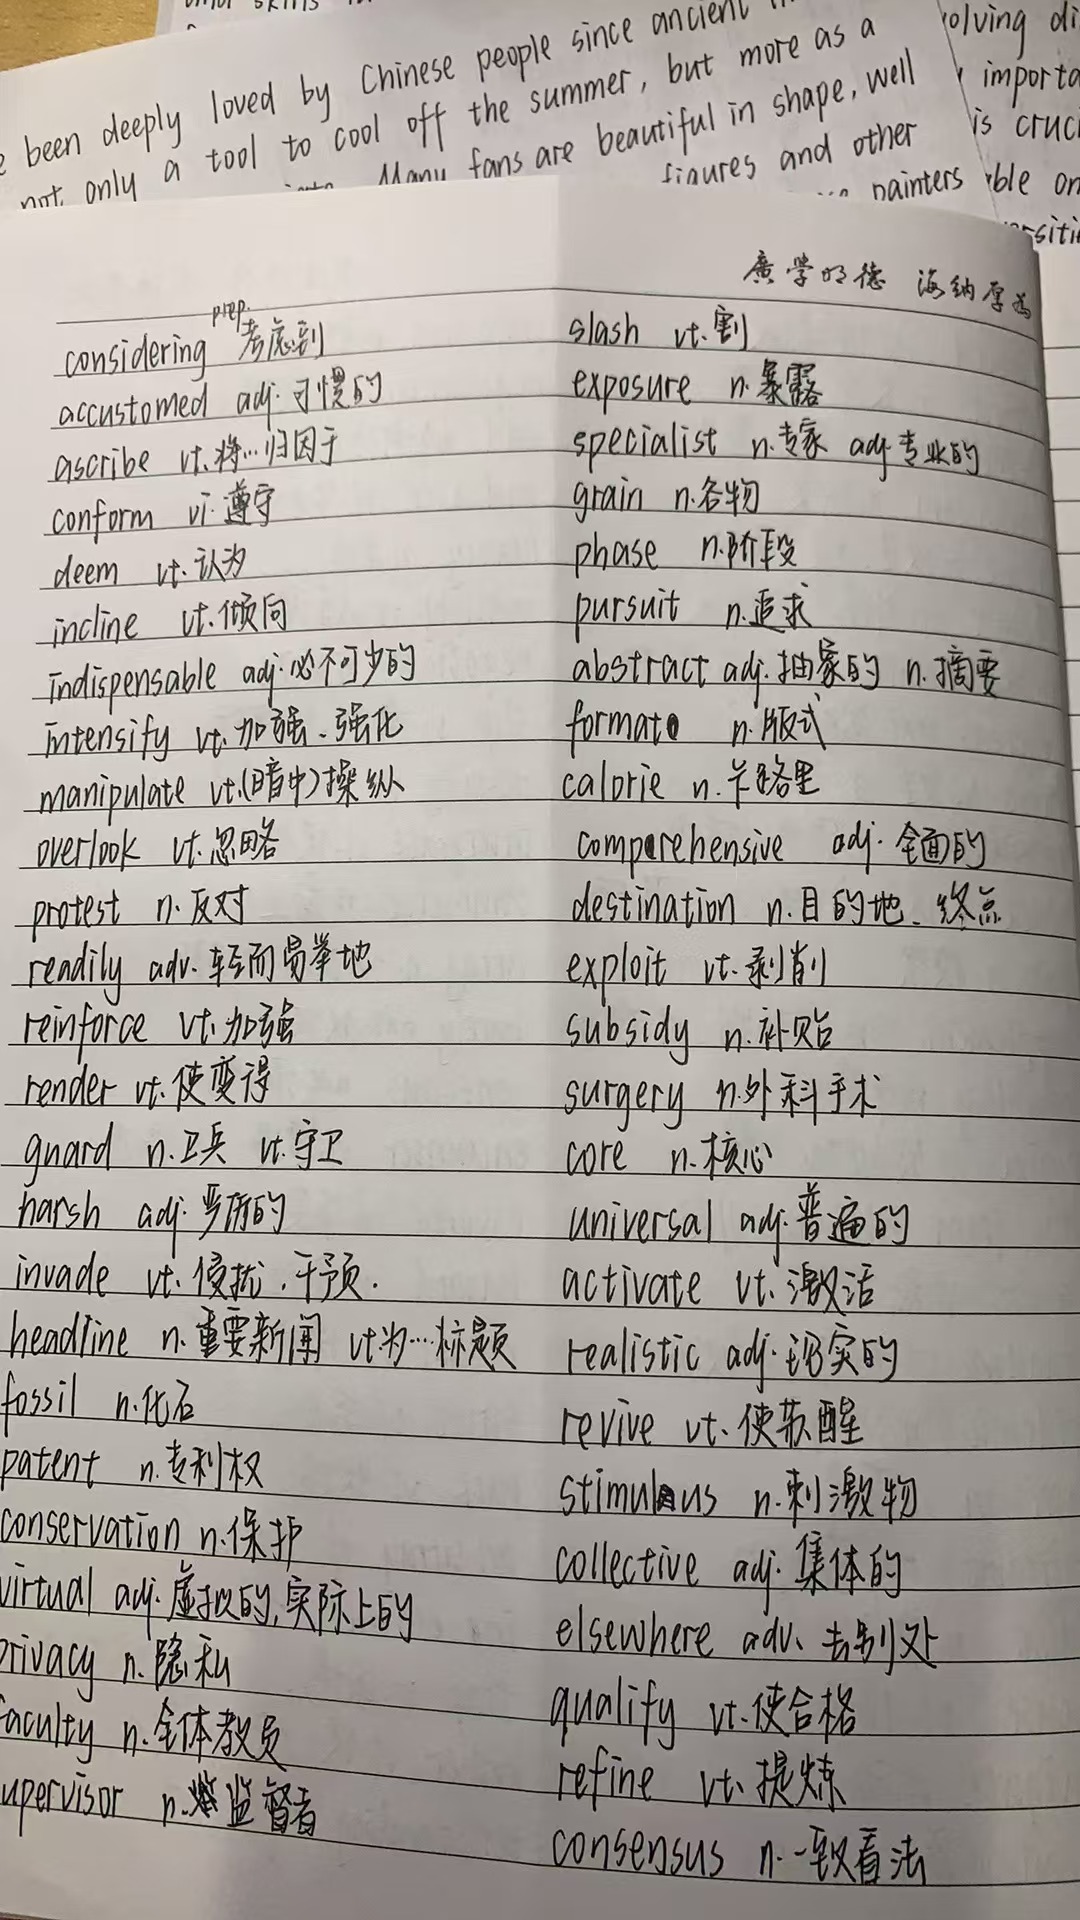 been deeply loved by Chinese people since ancient
not only a tool to cool off the summer, but more as a
Many fans are beautiful in shape, well
figures and other
painters
olving di
importa
is cruc
ble on
廣学明德 海纳厚为
considering prep. 考虑到
accustomed adj. 习惯的
ascribe vt. 将…归因于
conform vi. 遵守
deem vt. 认为
incline vt. 倾向
indispensable adj. 必不可少的
intensify vt. 加强、强化
manipulate vt. (暗中)操纵
overlook vt. 忽略
protest n. 反对
readily adv. 轻而易举地
reinforce vt. 加强
render vt. 使变得
guard n. 卫兵 vt. 守卫
harsh adj. 严厉的
invade vt. 侵扰.干预.
headline n. 重要新闻 vt.为…标题
fossil n. 化石
patent n. 专利权
conservation n. 保护
virtual adj. 虚拟的,实际上的
rivacy n. 隐私
faculty n. 全体教员
upervisor n. 监督者
slash vt. 割
exposure n. 暴露
specialist n. 专家 adj. 专业的
grain n. 各物
phase n. 阶段
pursuit n. 追求
abstract adj. 抽象的 n. 摘要
format n. 版式
calorie n. 卡路里
comprehensive adj. 全面的
destination n. 目的地、终点
exploit vt. 剥削
subsidy n. 补贴
surgery n. 外科手术
core n. 核心
universal adj. 普遍的
activate vt. 激活
realistic adj. 现实的
revive vt. 使苏醒
stimulus n. 刺激物
collective adj. 集体的
elsewhere adv. 去别处
qualify vt. 使合格
refine vt. 提炼
consensus n. 一致看法